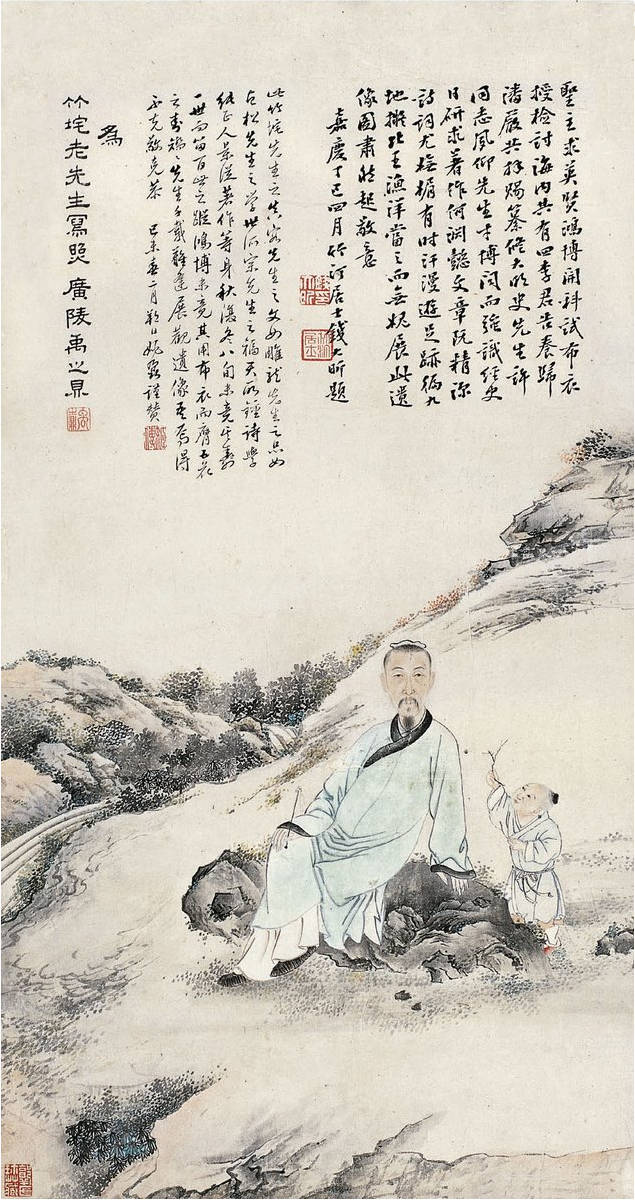 聖主求英賢鴻博開科試布衣
授檢討海内共有四李君告養歸
潘嚴共躅纂脩大明史先生許
同志夙仰先生才博闻而强識經史
日研求著作何渊懿文章既精深
詩詞尤有時汗漫遊足跡徧九
地擬北王漁洋當之而無愧展此遺
像圖肅然起敬意
嘉慶丁巳四月竹汀居士錢大昕題
此竹垞先生之真容先生之文如雕龍先生之品如
古松先生之学世所宗先生之福天所鍾詩學
正人著作等身秋復冬八旬未竟
一世而留百世之蹤鴻博未竟其用布衣而膺五花
之先生千載難逢展觀遺像吾焉得
不克敬克恭
己未春二月朔日姚鼐謹贊
為
竹垞老先生寫照 廣陵禹之鼎